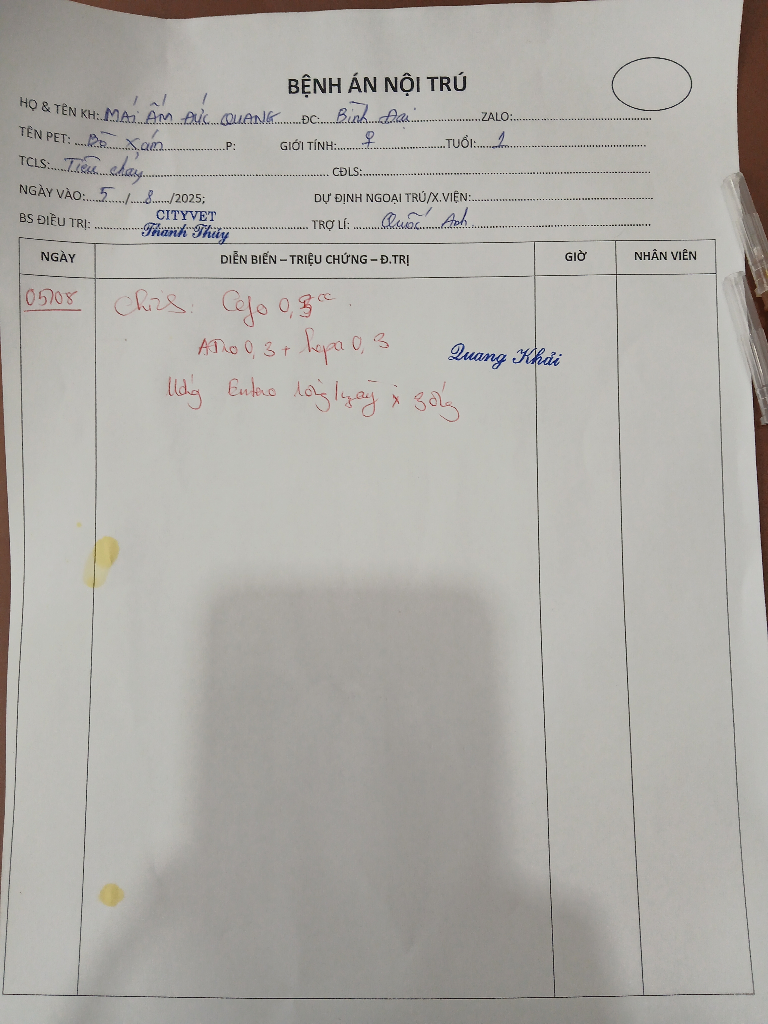 BỆNH ÁN NỘI TRÚ
HỌ & TÊN KH: MÁI ẤM ĐỨC QUANG ĐC: Bình Đại ZALO:
TÊN PET: Bò Xám P: GIỚI TÍNH: ♀ TUỔI: 1
TCLS: Tiêu chảy CĐLS:
NGÀY VÀO: 5 / 8 /2025; DỰ ĐỊNH NGOẠI TRÚ/X.VIỆN:
BS ĐIỀU TRỊ: CITYVET Thanh Thúy TRỢ LÍ: Quốc Anh
NGÀY DIỄN BIẾN – TRIỆU CHỨNG – Đ.TRỊ GIỜ NHÂN VIÊN
05/08 Cefo 0,3cc
0,3 + hepa 0,3
Quang Khải
Uống Entero 1ống/ngày x 3ống